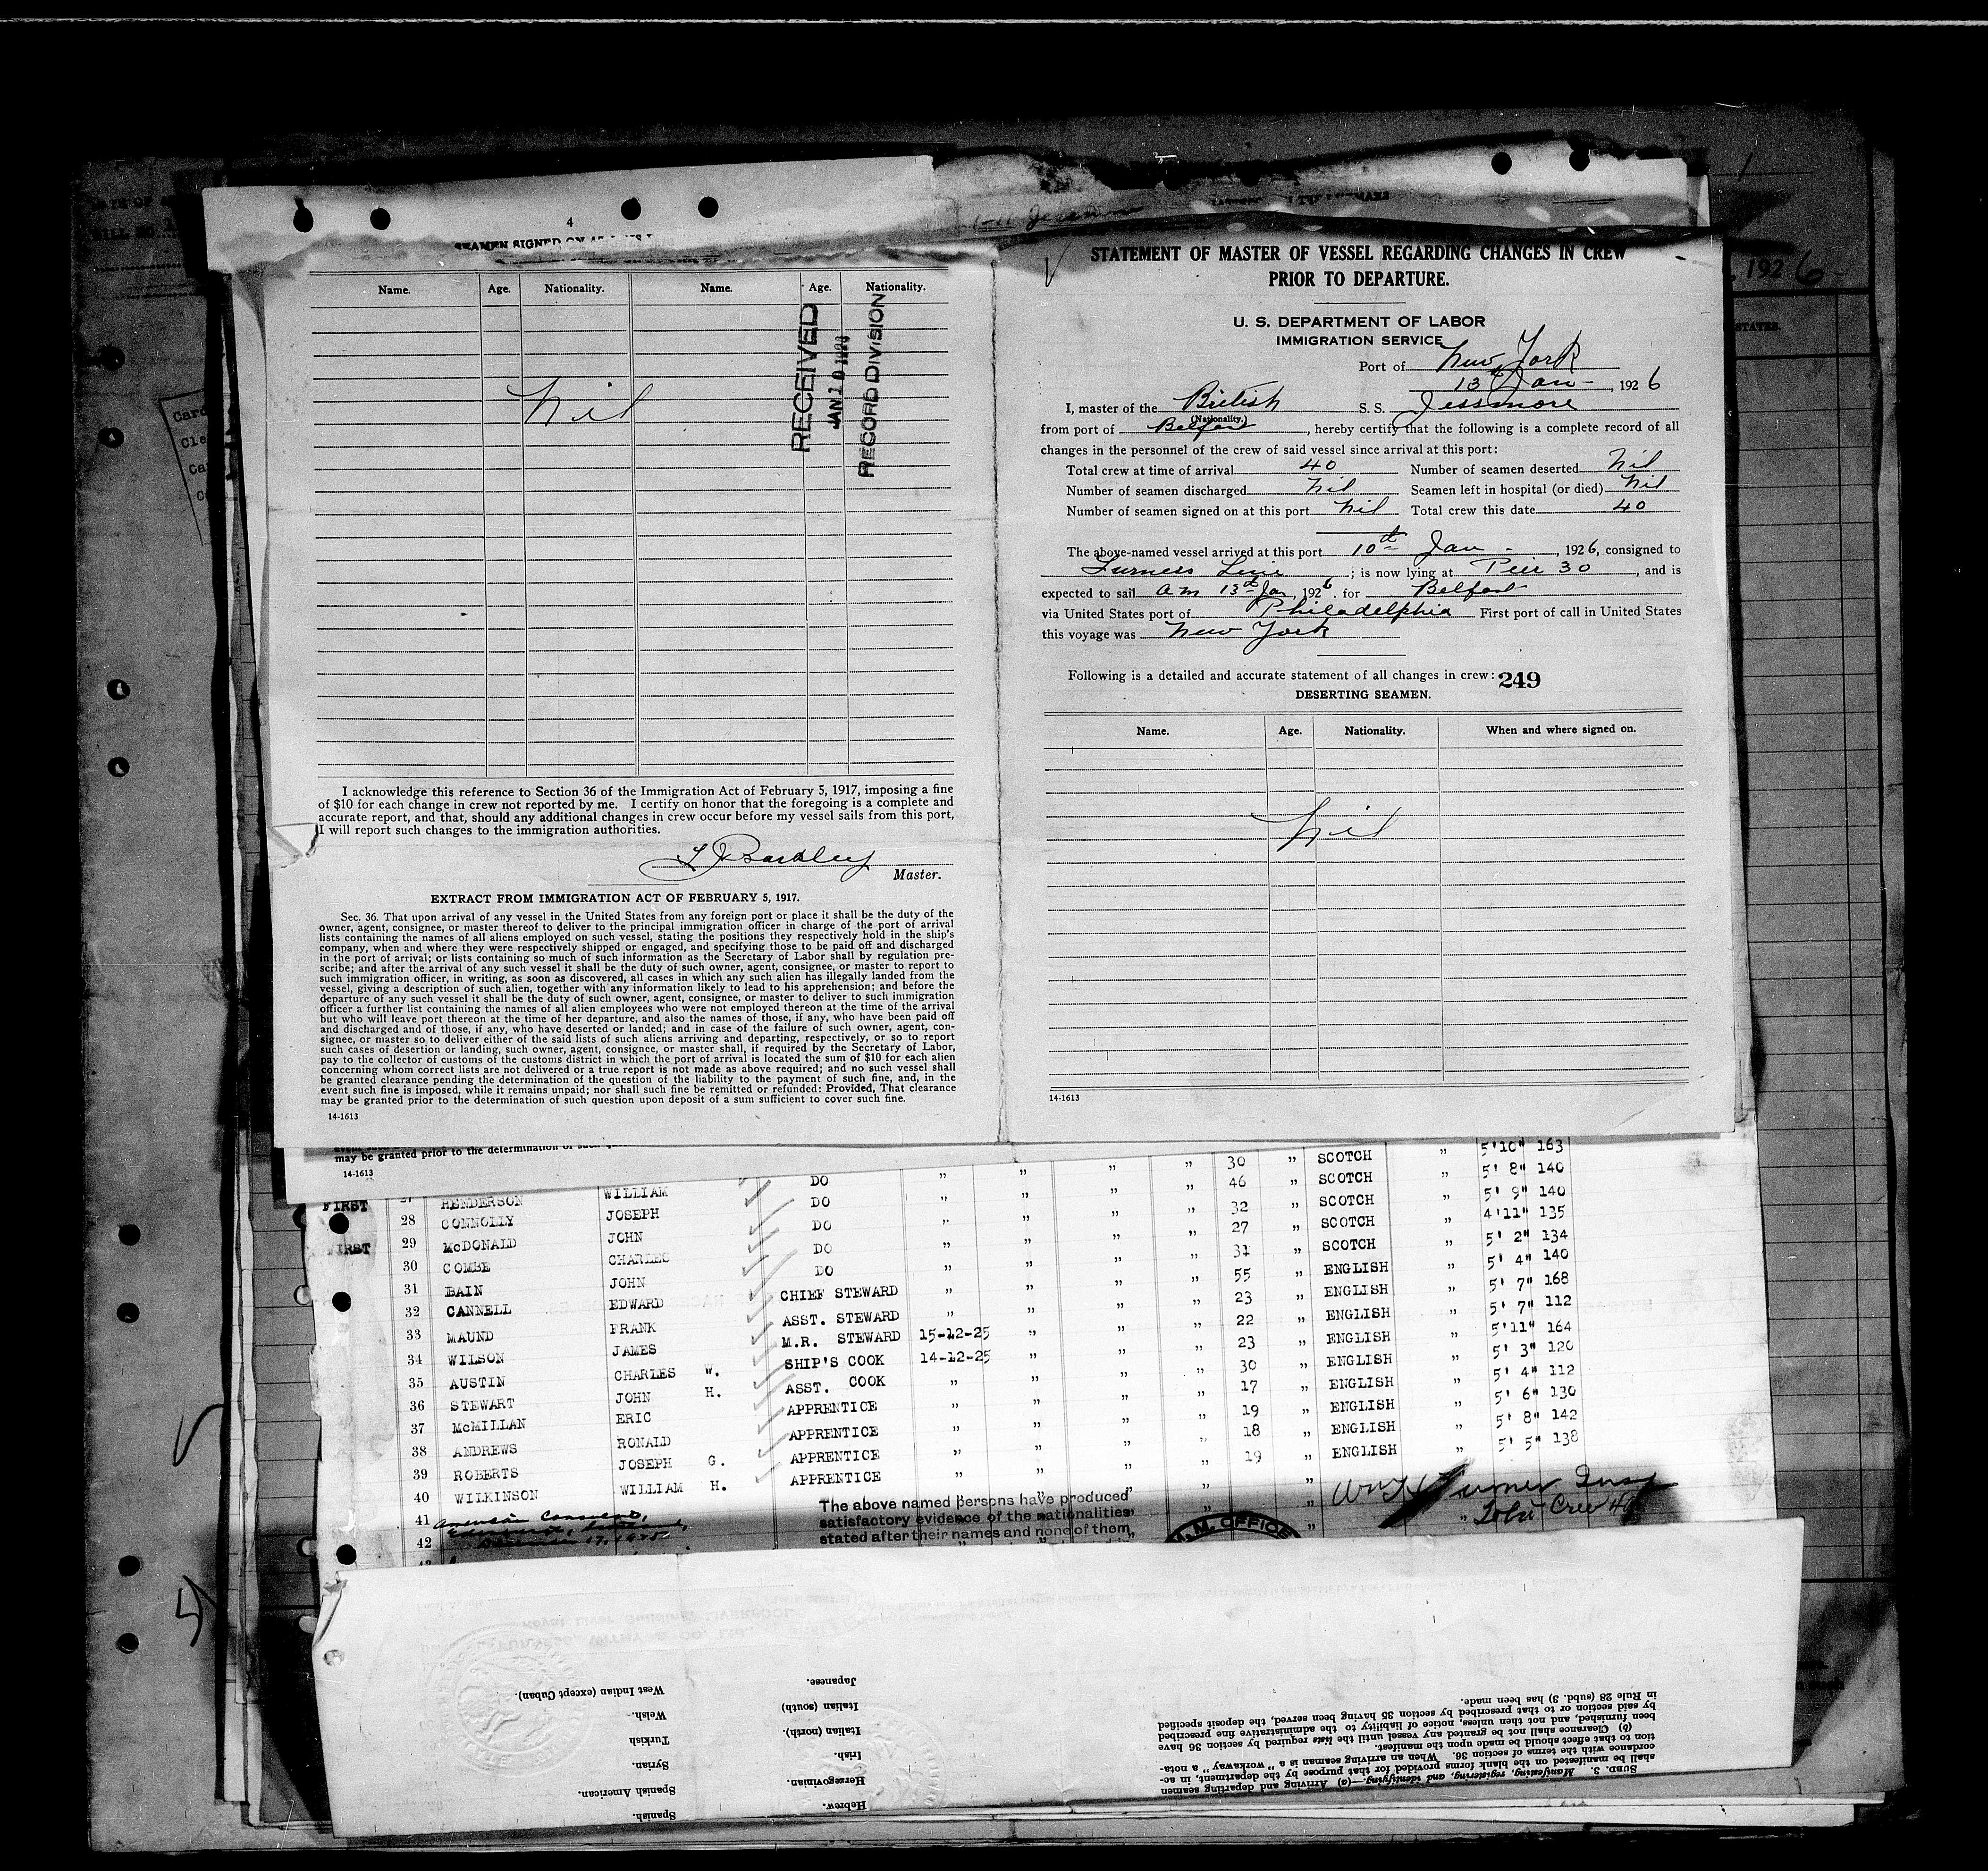 4
SEAMEN SIGNED ON
Name. Age. Nationality. Name. Age. Nationality.
Nil
RECEIVED
JAN 10
RECORD DIVISION
I acknowledge this reference to Section 36 of the Immigration Act of February 5, 1917, imposing a fine
of $10 for each change in crew not reported by me. I certify on honor that the foregoing is a complete and
accurate report, and that, should any additional changes in crew occur before my vessel sails from this port,
I will report such changes to the immigration authorities.
Master.
EXTRACT FROM IMMIGRATION ACT OF FEBRUARY 5, 1917.
Sec. 36. That upon arrival of any vessel in the United States from any foreign port or place it shall be the duty of the
owner, agent, consignee, or master thereof to deliver to the principal immigration officer in charge of the port of arrival
lists containing the names of all aliens employed on such vessel, stating the positions they respectively hold in the ship's
company, when and where they were respectively shipped or engaged, and specifying those to be paid off and discharged
in the port of arrival; or lists containing so much of such information as the Secretary of Labor shall by regulation pre-
scribe; and after the arrival of any such vessel it shall be the duty of such owner, agent, consignee, or master to report to
such immigration officer, in writing, as soon as discovered, all cases in which any such alien has illegally landed from the
vessel, giving a description of such alien, together with any information likely to lead to his apprehension; and before the
departure of any such vessel it shall be the duty of such owner, agent, consignee, or master to deliver to such immigration
officer a further list containing the names of all alien employees who were not employed thereon at the time of the arrival
but who will leave port thereon at the time of her departure, and also the names of those, if any, who have been paid off
and discharged and of those, if any, who have deserted or landed; and in case of the failure of such owner, agent, con-
signee, or master so to deliver either of the said lists of such aliens arriving and departing, respectively, or so to report
such cases of desertion or landing, such owner, agent, consignee, or master shall, if required by the Secretary of Labor,
pay to the collector of customs of the customs district in which the port of arrival is located the sum of $10 for each alien
concerning whom correct lists are not delivered or a true report is not made as above required; and no such vessel shall
be granted clearance pending the determination of the question of the liability to the payment of such fine, and, in the
event such fine is imposed, while it remains unpaid; nor shall such fine be remitted or refunded: Provided, That clearance
may be granted prior to the determination of such question upon deposit of a sum sufficient to cover such fine.
14-1613
STATEMENT OF MASTER OF VESSEL REGARDING CHANGES IN CREW
PRIOR TO DEPARTURE.
U. S. DEPARTMENT OF LABOR
IMMIGRATION SERVICE
Port of New York
13th Jan - , 1926
I, master of the British S. S. Jessmore
(Nationality.)
from port of Belfast, hereby certify that the following is a complete record of all
changes in the personnel of the crew of said vessel since arrival at this port:
Total crew at time of arrival 40 Number of seamen deserted Nil
Number of seamen discharged Nil Seamen left in hospital (or died) Nil
Number of seamen signed on at this port Nil Total crew this date 40
The above-named vessel arrived at this port 10th Jan - , 1926, consigned to
Furness Line ; is now lying at Pier 30 , and is
expected to sail am 13th Jan, 1926. for Belfast
via United States port of Philadelphia First port of call in United States
this voyage was New York
Following is a detailed and accurate statement of all changes in crew: 249
DESERTING SEAMEN.
Name. Age. Nationality. When and where signed on.
Nil
14-1613
1926
STATES.
may be granted prior to the determination of such
14-1613
DO " " " " 30 " SCOTCH " 5'10" 163
FIRST 27 HENDERSON WILLIAM DO " " " " 46 " SCOTCH " 5' 8" 140
28 CONNOLLY JOSEPH DO " " " " 32 " SCOTCH " 5' 9" 140
FIRST 29 McDONALD JOHN DO " " " " 27 " SCOTCH " 4'11" 135
30 COMBE CHARLES DO " " " " 31 " SCOTCH " 5' 2" 134
31 BAIN JOHN CHIEF STEWARD " " " " 55 " ENGLISH " 5' 4" 140
32 CANNELL EDWARD ASST. STEWARD " " " " 23 " ENGLISH " 5' 7" 168
33 MAUND FRANK M.R. STEWARD 15-12-25 " " " 22 " ENGLISH " 5' 7" 112
34 WILSON JAMES SHIP'S COOK 14-12-25 " " " 23 " ENGLISH " 5'11" 164
35 AUSTIN CHARLES W. ASST. COOK " " " " 30 " ENGLISH " 5' 3" 120
36 STEWART JOHN H. APPRENTICE " " " " 17 " ENGLISH " 5' 4" 112
37 McMILLAN ERIC APPRENTICE " " " " 19 " ENGLISH " 5' 6" 130
38 ANDREWS RONALD APPRENTICE " " " " 18 " ENGLISH " 5' 8" 142
39 ROBERTS JOSEPH G. APPRENTICE " " " " 19 " ENGLISH " 5' 5" 138
40 WILKINSON WILLIAM H.
41
42
The above named persons have produced
satisfactory evidence of the nationalities
stated after their names and none of them
Total Crew 40
OFFICE
Japanese.
West Indian (except Cuban). Italian (south)
Welsh. Italian (north).
Turkish Irish.
Syrian. Herzegovinian.
Spanish American. Hebrew.
Spanish.
SUBD. 3. Manifesting, registering, and identifying.—(a) Arriving and departing seamen
shall be manifested on the blank forms provided for that purpose by the department, in ac-
cordance with the terms of section 36. When an arriving seaman is a "workaway" a nota-
tion to that effect should be made upon the manifest.
(b) Clearance shall not be granted any vessel until the lists required by section 36 have
been furnished, and not then unless, notice of liability to the administrative fine prescribed
by said section or to that prescribed by section 35 having been served, the deposit specified
in Rule 28 (subd. 3) has been made.